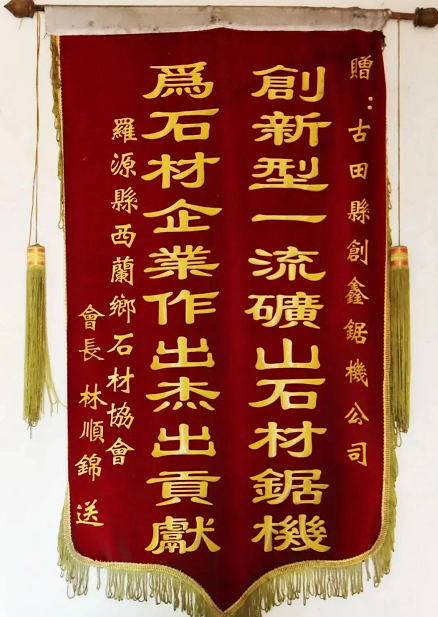 贈：古田縣創鑫鋸機公司
創新型一流礦山石材鋸機
爲石材企業作出杰出貢獻
羅源縣西蘭鄉石材協會
會長 林順錦 送